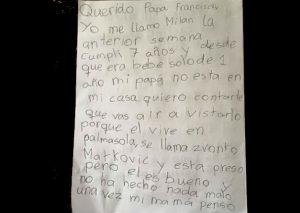 Querido Papa Francisco
Yo me llamo Milan la
anterior semana
cumpli 7 años y desde
que era bebé solo de 1
año mi papá no esta en
mi casa quiero contarle
que vas a ir a visitarlo
porque el vive en
palmasola, se llama zvonko
Matkovic y esta preso
pero el es bueno y
no ha hecho nada malo
una vez mi mamá penso